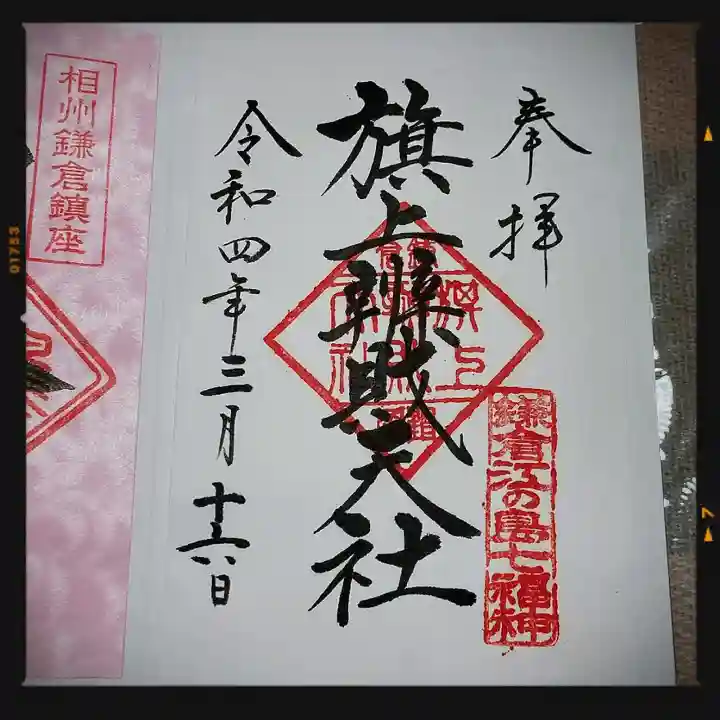 奉拝
旗上辨財天社
鎌倉江の島七福神
令和四年三月十六日
相州鎌倉鎮座
01753
7